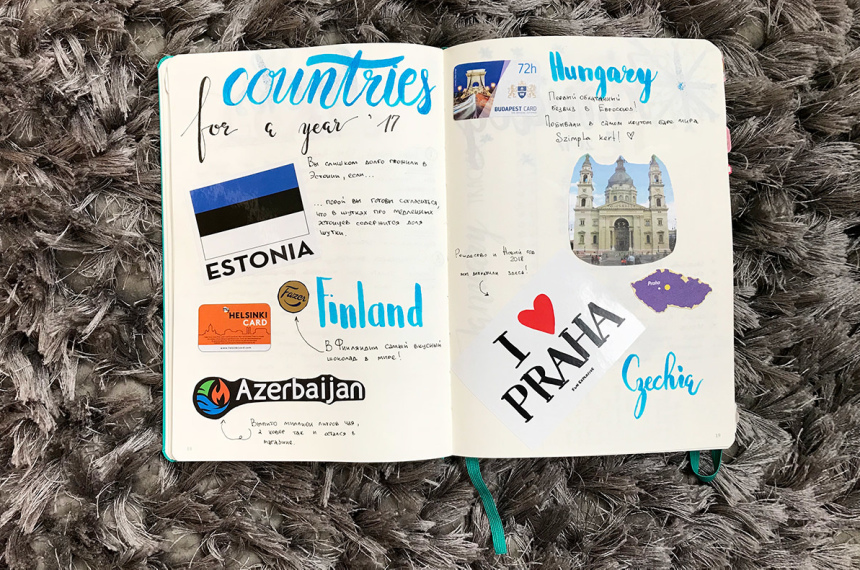 countries
for a year '17
Вы слишком долго гостили в
Эстонии, если...
...порой вы готовы согласиться,
что в шутках про медленных
эстонцев содержится доля
шутки.
ESTONIA
Fazer
Finland
HELSINKI
CARD
В Финляндии самый вкусный
шоколад в мире!
Azerbaijan
Выпито миллион литров чая,
а ковер так и остался в
магазине.
72h
BUDAPEST CARD
Hungary
Первый
безвиз в Евросоюз!
Побывали в самом крутом баре мира
Szimpla kert! ♡
Рождество и Новый год
2018
мы встретили здесь!
Praha
I ♥
PRAHA
Czechia